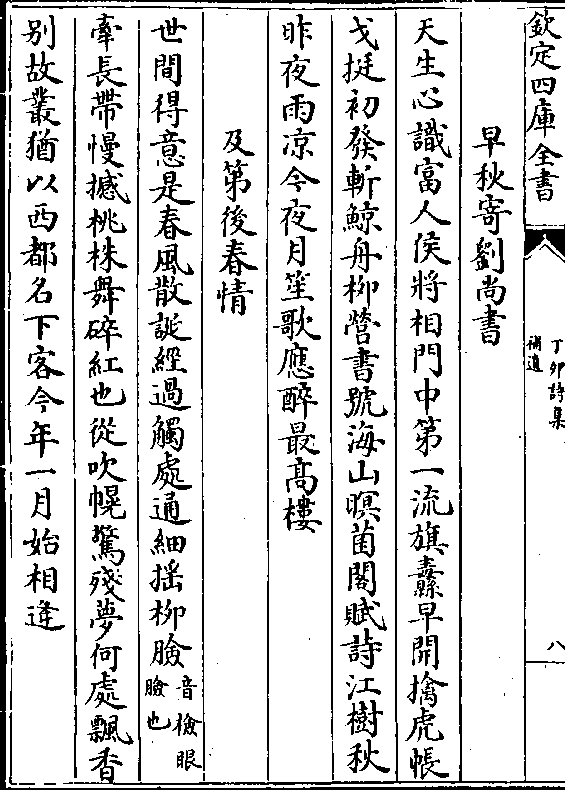 欽定四庫全書
丁卯詩集
補遺
八
早秋寄劉尚書
天生心識富人侯將相門中第一流旗纛早開擒虎帳
戈挺初發斬鯨舟柳營書號海山暝菌閣賦詩江樹秋
昨夜雨凉今夜月笙歌應醉最高樓
及第後春情
世間得意是春風散誕經過觸處通細揺柳臉
音檢眼
臉也
牽長帶慢撼桃株舞碎紅也從吹幌驚殘夢何處飄香
别故叢猶以西都名下客今年一月始相逢